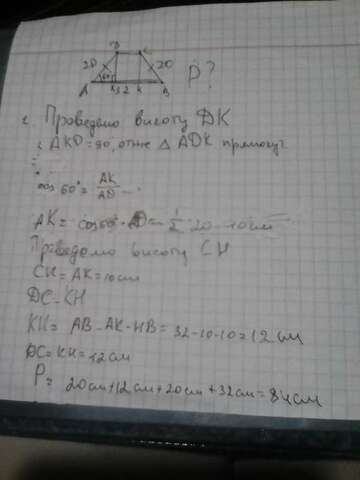 D C
20 20 P?
60°
A K 32 K B
2. Проведемо висоту DK
∠ AKD = 90°, отже △ ADK прямокут
cos 60° = AK/AD
AK = cos60° · AD = 1/2 · 20 = 10 см
Проведемо висоту CH
CH = AK = 10 см
DC = KH
KH = AB - AK - HB = 32-10-10 = 12 см
DC = KH = 12 см
P = 20 см + 12 см + 20 см + 32 см = 84 см